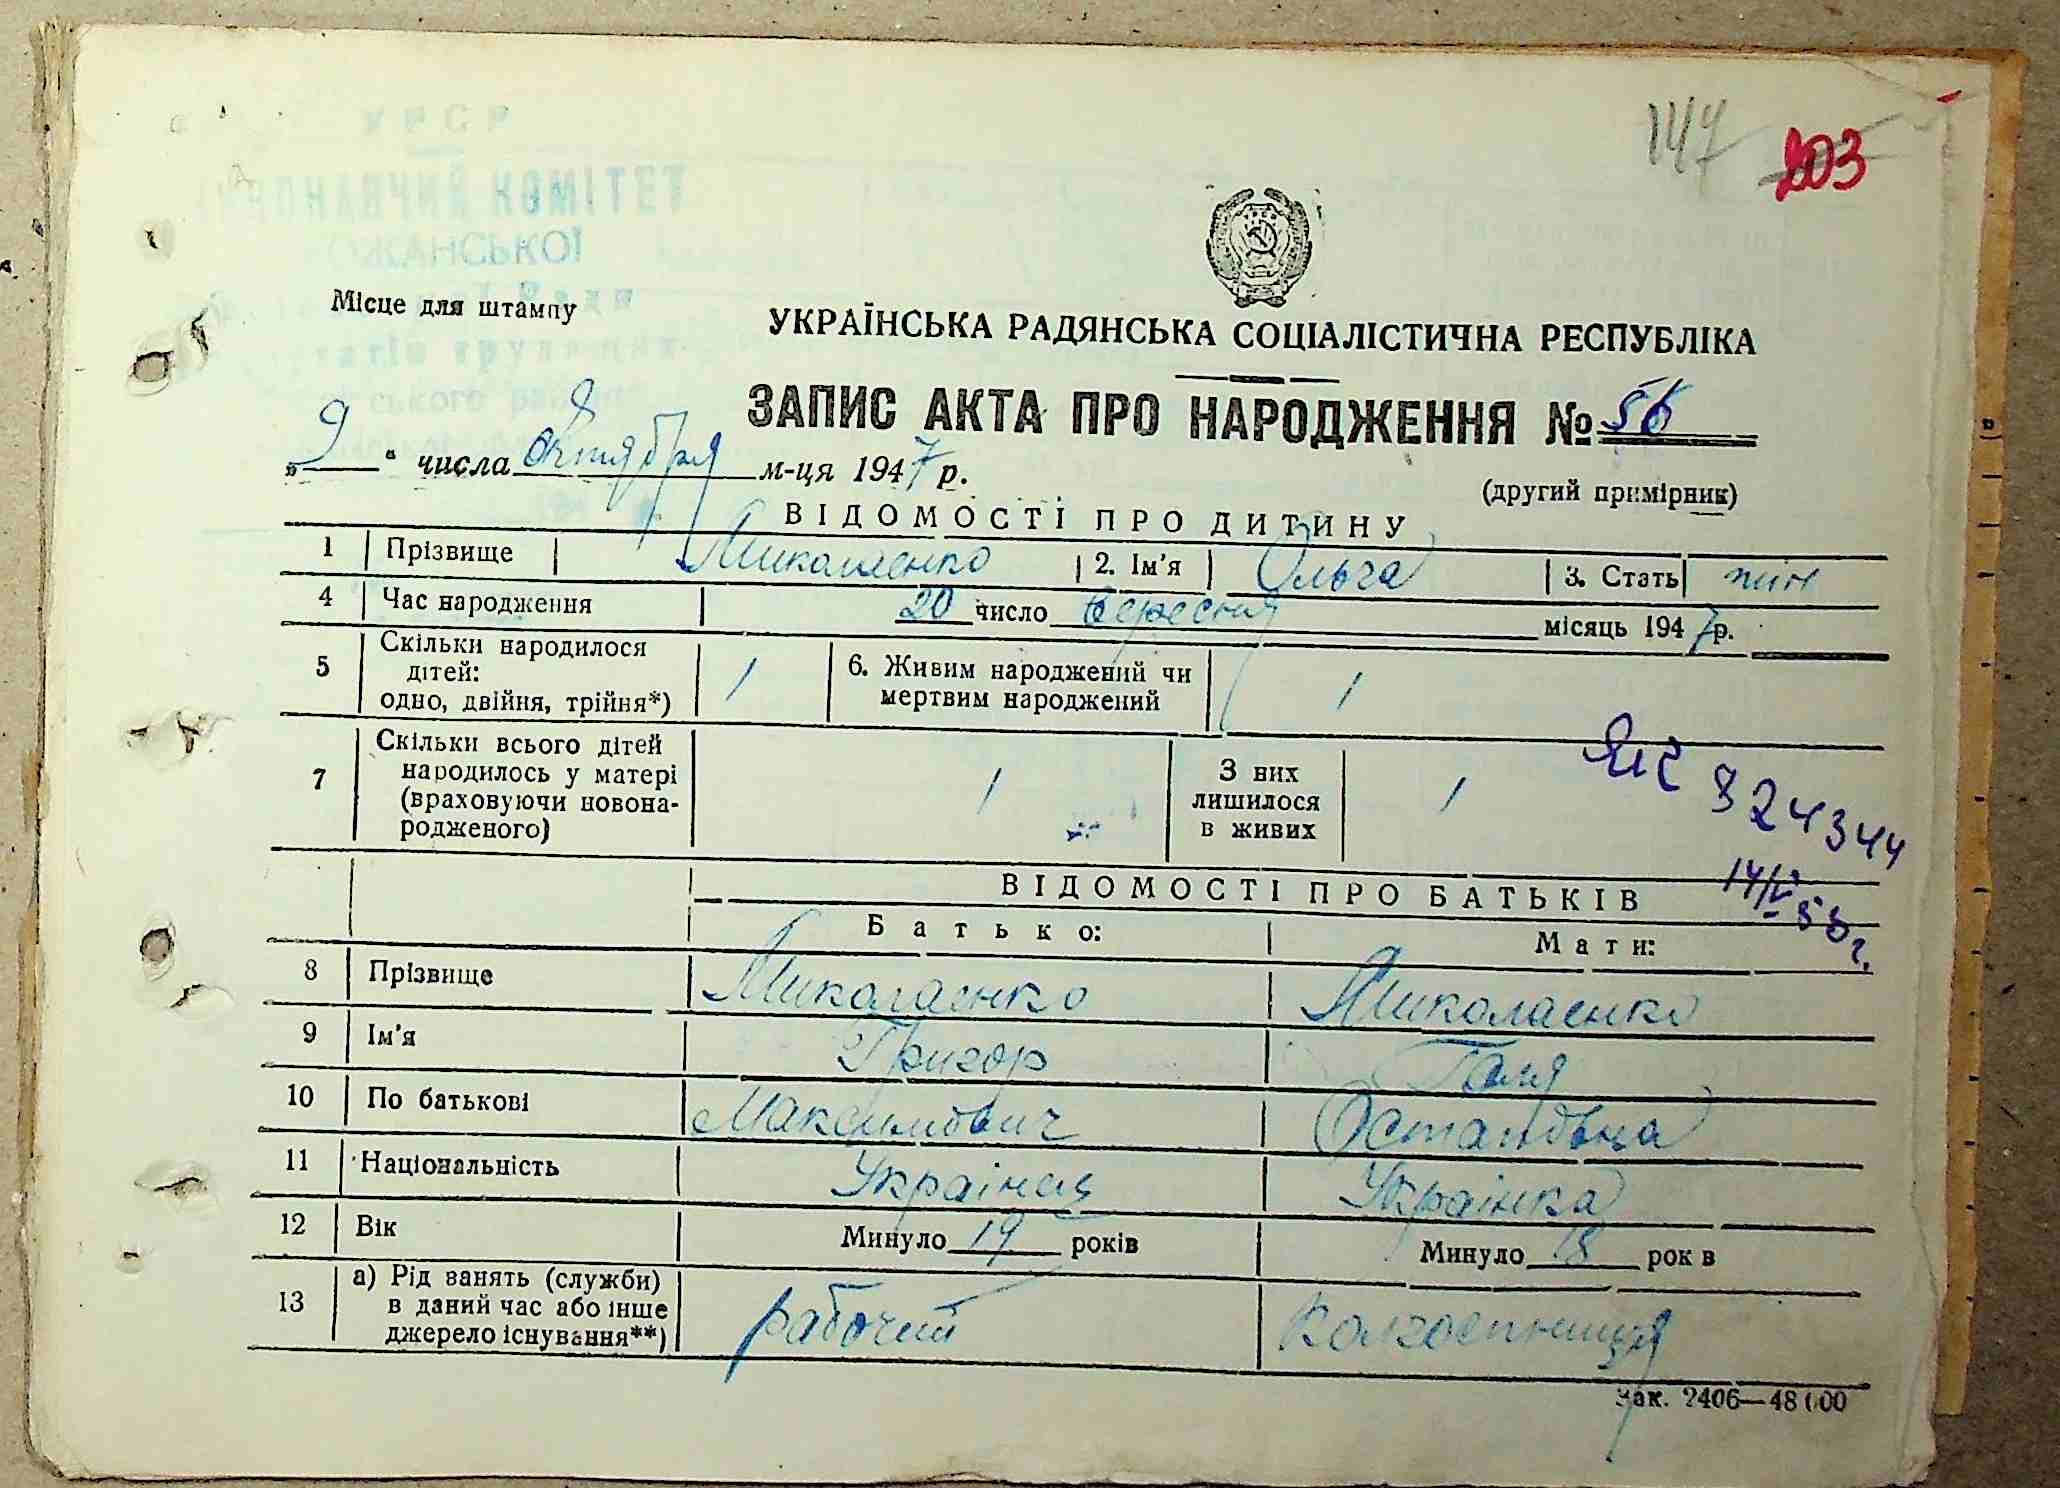 147 203
УРСР
КОМІТЕТ
Місце для штампу
УКРАЇНСЬКА РАДЯНСЬКА СОЦІАЛІСТИЧНА РЕСПУБЛІКА
ЗАПИС АКТА ПРО НАРОДЖЕННЯ № 56
„9“ числа октября м-ця 1947 р.
(другий примірник)
ВІДОМОСТІ ПРО ДИТИНУ
1 Прізвище Миколаенко 2. Ім'я Ольга 3. Стать жін
4 Час народження 20 число вересня місяць 1947 р.
5 Скільки народилося дітей: одно, двійня, трійня*) 1 6. Живим народжений чи мертвим народжений 1
7 Скільки всього дітей народилось у матері (враховуючи новонародженого) 1 З них лишилося в живих 1
324344
ВІДОМОСТІ ПРО БАТЬКІВ
Батько: Мати:
8 Прізвище Миколаенко Миколаенко
9 Ім'я Григор Галя
10 По батькові Максимович Остаповна
11 Національність Українец Українка
12 Вік Минуло 19 років Минуло 18 рок в
13 а) Рід занять (служби) в даний час або інше джерело існування**) рабочий Колгоспниця
Зак. 2406—48000